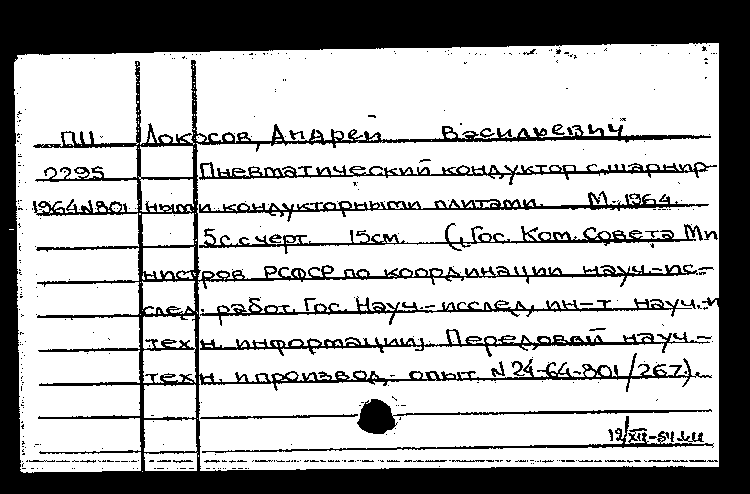 ПШ Локосов, Андрей Васильевич
2295 Пневматический кондуктор с шарнир-
1964 N801 ными кондукторными плитами. М., 1964.
5с. с черт. 15см. (Гос. Ком. Совета Ми
нистров РСФСР по координации науч.-ис-
след. работ. Гос. Науч.-исслед. ин-т науч.-и
техн. информации). Передовой науч.-
техн. и производ.- опыт. N24-64-801/267).